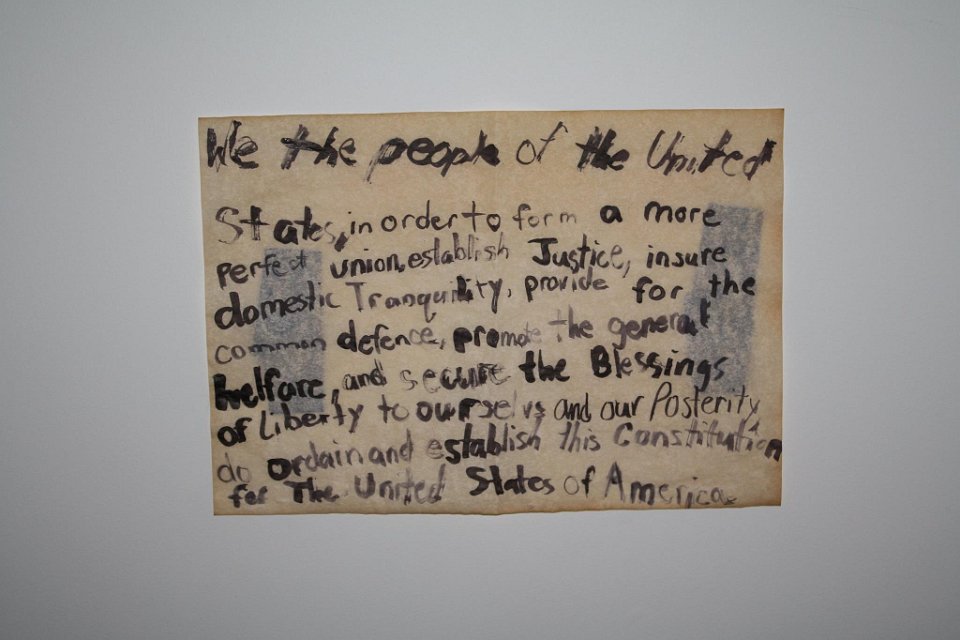 We the people of the United
States, in order to form a more
perfect union, establish Justice, insure
domestic Tranquility, provide for the
common defence, promote the general
welfare, and secure the Blessings
of Liberty to ourselvs and our Posterity,
do ordain and establish this Constitution
for The United States of America